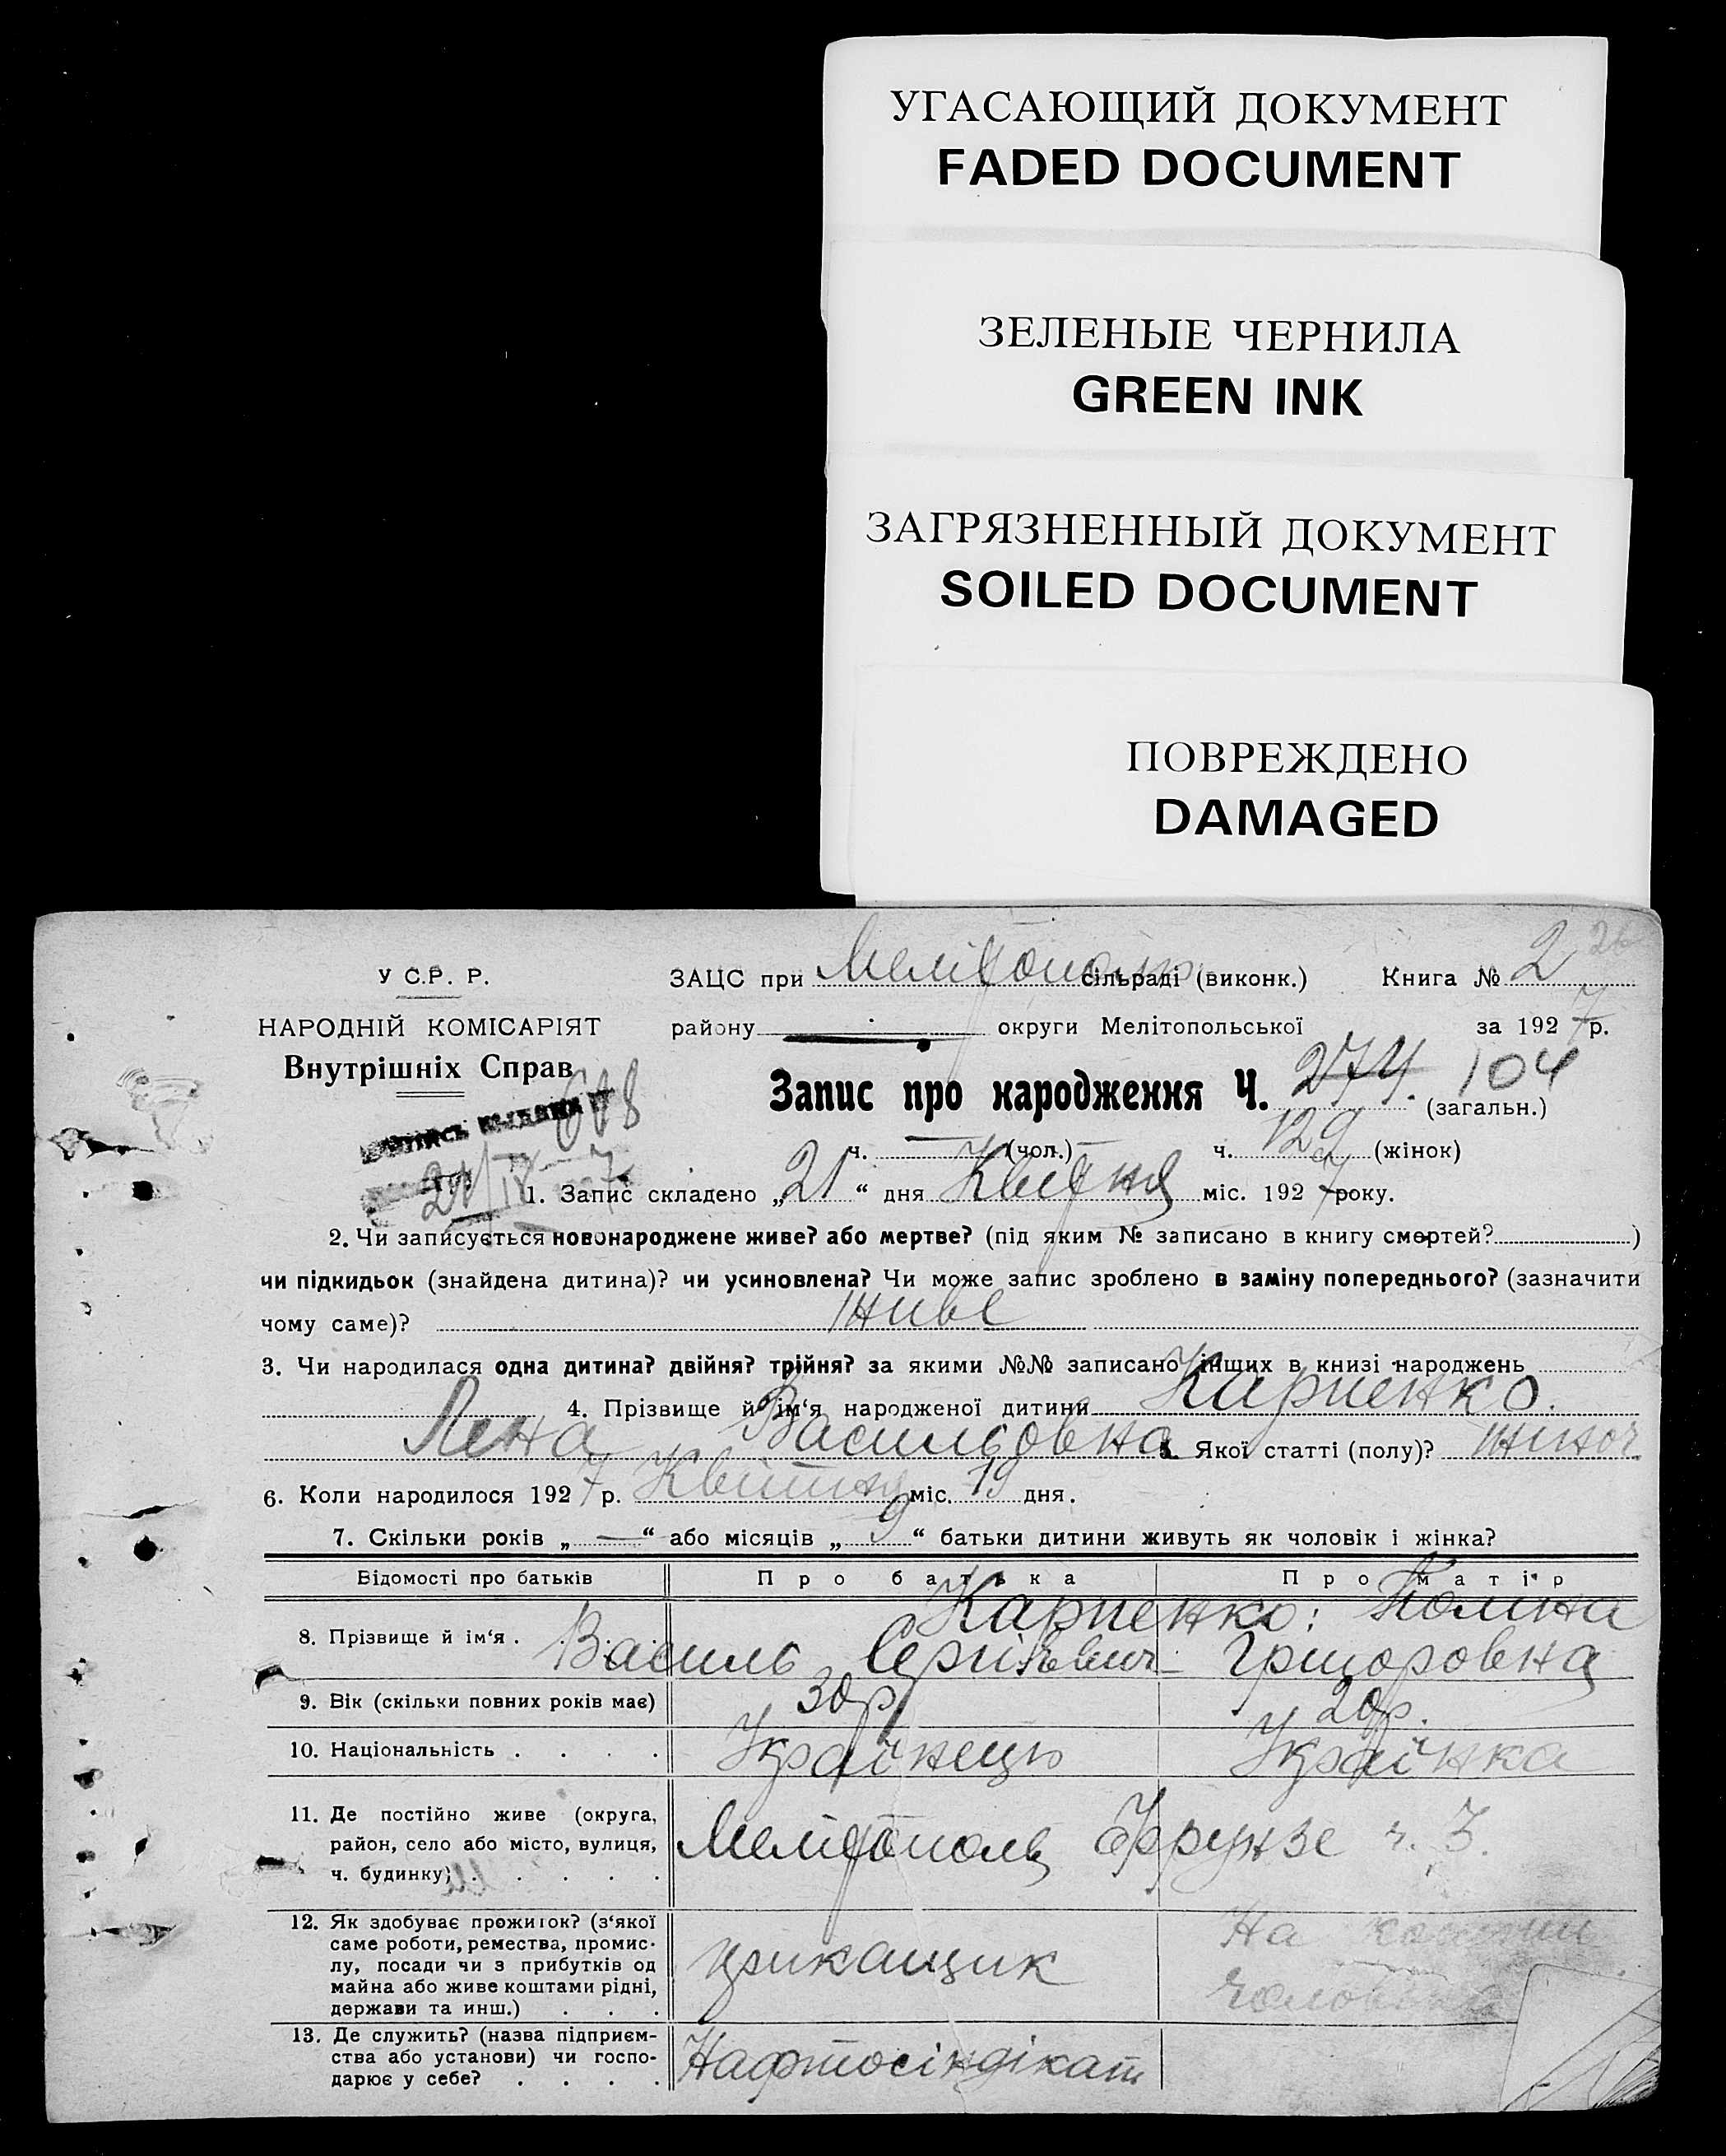 УГАСАЮЩИЙ ДОКУМЕНТ
FADED DOCUMENT
ЗЕЛЕНЫЕ ЧЕРНИЛА
GREEN INK
ЗАГРЯЗНЕННЫЙ ДОКУМЕНТ
SOILED DOCUMENT
ПОВРЕЖДЕНО
DAMAGED
У С.Р. Р.
НАРОДНІЙ КОМІСАРІЯТ
Внутрішніх Справ
608
21/IV 7
ЗАЦС при Мелітополь сільраді (виконк.) Книга № 2 26
району округи Мелітопольської за 1927 р.
Запис про народження Ч. 274. 104 (загальн.)
ч. — (чол.) ч. 129 (жінок)
1. Запис складено „21“ дня Квітня міс. 1927 року.
2. Чи записується новонароджене живе? або мертве? (під яким № записано в книгу смертей? )
чи підкидьок (знайдена дитина)? чи усиновлена? Чи може запис зроблено в заміну попереднього? (зазначити
чому саме)? живе
3. Чи народилася одна дитина? двійня? трійня? за якими №№ записано інших в книзі народжень
4. Прізвище й ім‘я народженої дитини Карпенко.
Лена Васильовна 5. Якої статті (полу)? жіноч
6. Коли народилося 1927 р. Квітня міс. 19 дня.
7. Скільки років „—“ або місяців „9“ батьки дитини живуть як чоловік і жінка?
Відомості про батьків Про батька Про матір
8. Прізвище й ім‘я . Карпенко: Поліна
Василь Сергієвич Григоровна
9. Вік (скільки повних років має) 30р 20р.
10. Національність . . . . Українець Українка
11. Де постійно живе (округа,
район, село або місто, вулиця,
ч. будинку) . . . . . Мелітополь Фрунзе ч. 3.
12. Як здобуває прожиток? (з‘якої
саме роботи, ремества, промис-
лу, посади чи з прибутків од
майна або живе коштами рідні,
держави та инш.) . . . прикащик На кошти
чоловіка
13. Де служить? (назва підприєм-
ства або установи) чи госпо-
дарює у себе? . . . . Нафтосіндікат